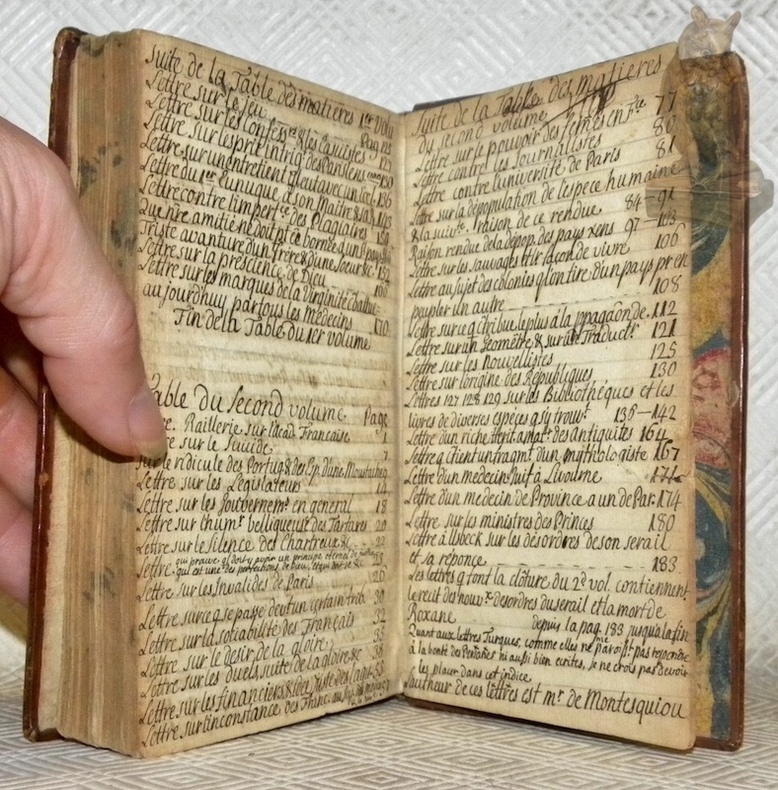 Suite de la Table des matieres 1er Volu
Page
Lettre sur le jeu 123
Lettre sur les Confess.rs & les Casuistes 125
Lettre sur l'esprit intrig.t des Parisiens 130
Lettre sur un entretient qu'il eut avec un 136
Lettre du 1er Eunuque, a son Maitre &
Lettre contre l'impert.ce des Plagiaires
que n're amitié ne doit p.t être bornée a un s.l pays
Triste avanture d'un frere & d'une soeur &c. 152
Lettre sur la prescience de Dieu 160
Lettre sur les marques de la virginité
aujourd'huy par tous les Medecins 170
Fin de la Table du 1er volume
Table du Second volume Page
Raillerie sur l'acad. Francaise 1
sur le Suicide 7
sur le ridicule des Portug. & des Esp. d'une Moustache
Lettre sur les Législateurs 14
Lettre sur les Gouvernem.s en general 18
Lettre sur l'hum.r belliqueuse des Tartares 20
Lettre sur le Silence des Chartreux &c. 22
Lettre qui prouve qu'il doit y avoir un principe eternel de
qui est une des perfections de Dieu, et qui
Lettre sur les Invalides de Paris 26
Lettre sur ce qui se passe devt un certain trib. 30
Lettre sur la sotiabilité des Français 32
Lettre sur le desir de la gloire 35
Lettre sur les duels, suite de la gloire &c 38
Lettre sur les financiers & idée juste des 55
Lettre sur l'inconstance des Princ.
Suite de la Table des matieres
du second volume
Lettre sur le pouvoir des femes en f.ce 77
Lettre contre les Journalistes 80
Lettre contre l'université de Paris 81
Lettre sur la dépopulation de l'espece humaine
& la suiv.te, raison de ce rendue 84-91
Raison rendue de la depop. des pays xens 97-103
Lettre sur les Sauvages & lr façon de vivre 106
Lettre au sujet des colonies qu'on tire d'un pays pr en
peupler un autre 108
Lettre sur ce q. contribue le plus á la ppagaõn de. 112
Lettre sur un Geometre & sur un Traduct.r 121
Lettre sur les Nouvellistes 125
Lettre sur l'origine des Republiques 130
Lettres 127 128 129 sur les Bibliothéques et les
livres de diverses espéces q. s'y trouv.t 136-142
Lettre d'un riche herit. amat.r des antiquités 164
Lettre q. contient un fragm.t d'un mythologiste 167
Lettre d'un medecin Juif à Livourne 171
Lettre d'un medecin de Province a un de Par. 174
Lettre sur les ministres des Princes 180
Lettre à Usbeck sur les désordres de son serail
et sa réponce 183
Les lettres q. font la clôture du 2.d vol. contiennent
le recit des nouv.x desordres du serail et la mort de
Roxane depuis la pag. 183 jusqu'a la fin
Quant aux lettres Turques, comme elles ne parois.t pas repondre
à la bonté des Persanes ni aussi bien ecrites, je ne crois pas devoir
les placer dans cet indice
L'autheur de ces lettres est m.r de Montesquiou